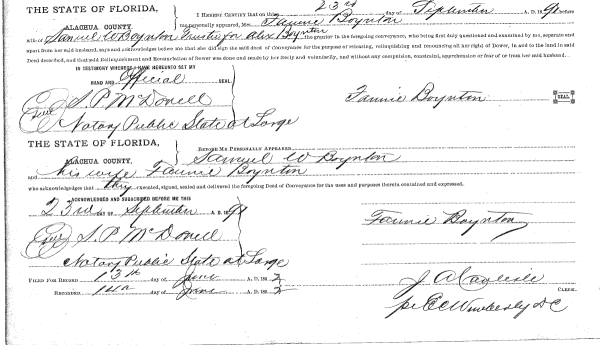 THE STATE OF FLORIDA,
ALACHUA COUNTY.
I HEREBY CERTIFY that on this 23rd day of September A. D. 1891 before
me personally appeared, Mrs. Fannie Boynton
wife of Samuel W Boynton Trustee for Alex Boynton the grantor in the foregoing conveyance, who being first duly questioned and examined by me, separate and
apart from her said husband, says and acknowledges before me that she did sign the said deed of Conveyance for the purpose of releasing, relinquishing and renouncing all her right of Dower, in and to the land in said
Deed described, and that said Relinquishment and Renunciation of Dower was done and made by her freely and voluntarily, and without any compulsion, constraint, apprehension or fear of or from her said husband.
IN TESTIMONY WHEREOF, I HAVE HEREUNTO SET MY
HAND AND Official
S. P. McDonell
Fannie Boynton SEAL
Notary Public State at Large
THE STATE OF FLORIDA,
ALACHUA COUNTY.
BEFORE ME PERSONALLY APPEARED Samuel W Boynton
and his wife Fannie Boynton
who acknowledges that they executed, signed, sealed and delivered the foregoing Deed of Conveyance for the uses and purposes therein contained and expressed.
ACKNOWLEDGED AND SUBSCRIBED BEFORE ME THIS
23rd DAY OF September A. D. 1891
Fannie Boynton
S. P. McDonell
Notary Public State at Large
FILED FOR RECORD 13th day of June A. D. 1892
RECORDED 14th day of June A. D. 1892
J A Carlisle CLERK.
per C C Wimberly D C